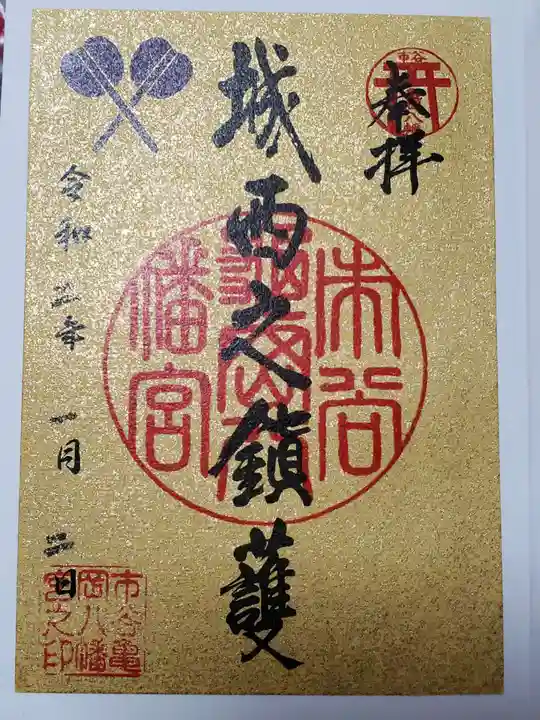 奉拝
城西之鎮護
市谷
龜岡八
幡宮
令和三年 一月 二日
市谷亀
岡八幡
宮之印